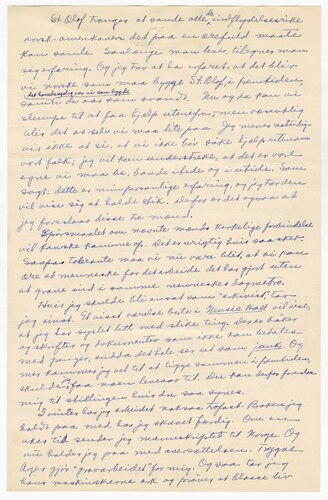 St. Olaf trenger at samle alle de indflydelsesrike
norsk-amerikanere det paa en ærefuld maate
kan samle. Saalænge man lever, tilegner man
sig erfaring. Og jeg tror at ha erfaret, at det blir
vi norske som maa bygge St. Olaf i fremtiden,
det hovedsagelig var vi som bygde
samt de i svandt. Nu og da kan vi
slumpe til at faa hjelp utenfra, men
blir det os selv vi maa lite paa. Jeg mener naturlig-
vis ikke at si, at vi ikke bør søke hjelp utenom
vort folk; jeg vil kun understreke, at det er vore
egne vi maa be, baade i tide og i utide. Som
sagt: dette er min personlige erfaring, og jeg tror den
vil vise sig at holde stik. Derfor er det ogsaa at
jeg foreslaar disse tre mænd.
Spørsmaalet om nævnte mands kirkelige forbindelse
vil kanske komme op. Det er uriktig hvis saa sker.
Saapas tolerante maa vi nu være blit, at vi kan
ære et menneske for det arbeide det har gjort uten
at grave ind i samme menneskes dogmetro.
Hvis jeg skulde bli ansat som "arkivist", tar
jeg imot. Et visst værelse borte i Music Hall vil vise,
at jeg har syslet litt med slike ting. Der er bøker
og skrifter og dokumenter som ikke kan betales
med penger, endda det hele ser ut som junk. Og
mer kommer jeg vel til at
skulde jeg faa noen leveaar til. Du kan derfor foreslaa
mig til stillingen hvis du saa synes.
I vinter har jeg arbeidet nokså trofast. Boken jeg
holdt paa med, har jeg skrevet færdig. Om en
ukes tid sender jeg manuskriptet til Norge. Og
nu holder jeg paa med oversættelsen. Trygve
Ager gjør "grovarbeidet" for mig. Og saa tar jeg
hans maskinskrevne ark og prøver at blaase liv